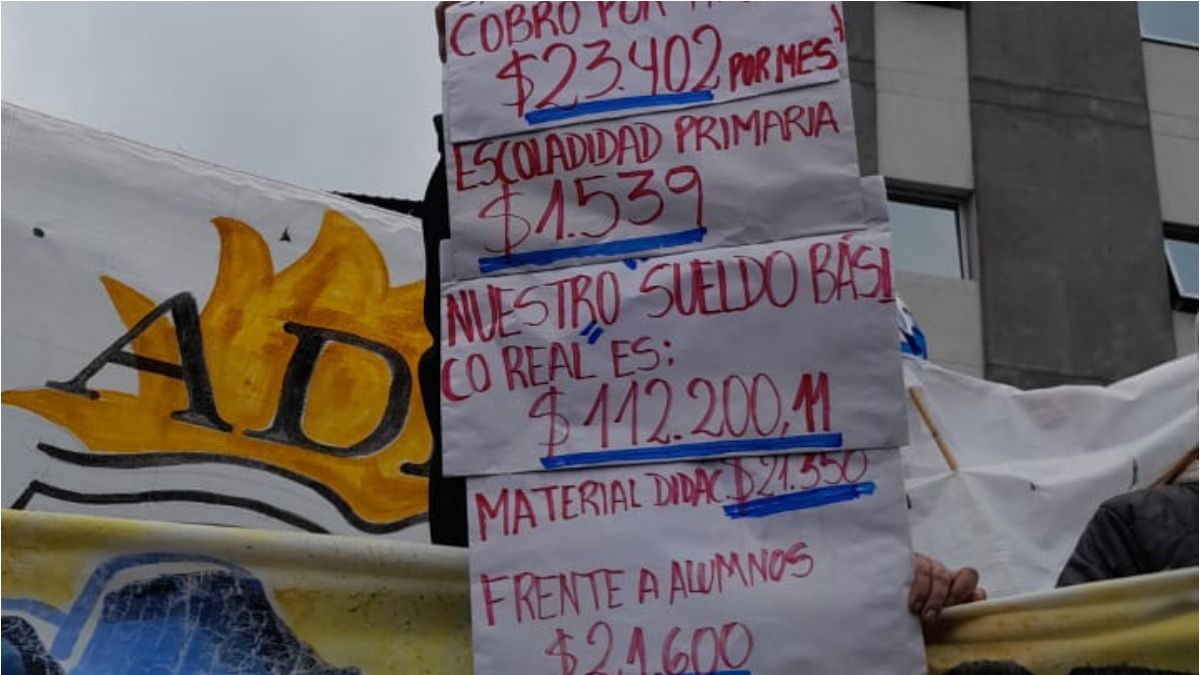 COBRO POR
$23.402 POR MES
ESCOLADIDAD PRIMARIA
$1.539
NUESTRO SUELDO BÁSI
CO REAL ES:
$112.200,11
MATERIAL DIDAC. $21.350
FRENTE A ALUMNOS
$21.600
AD